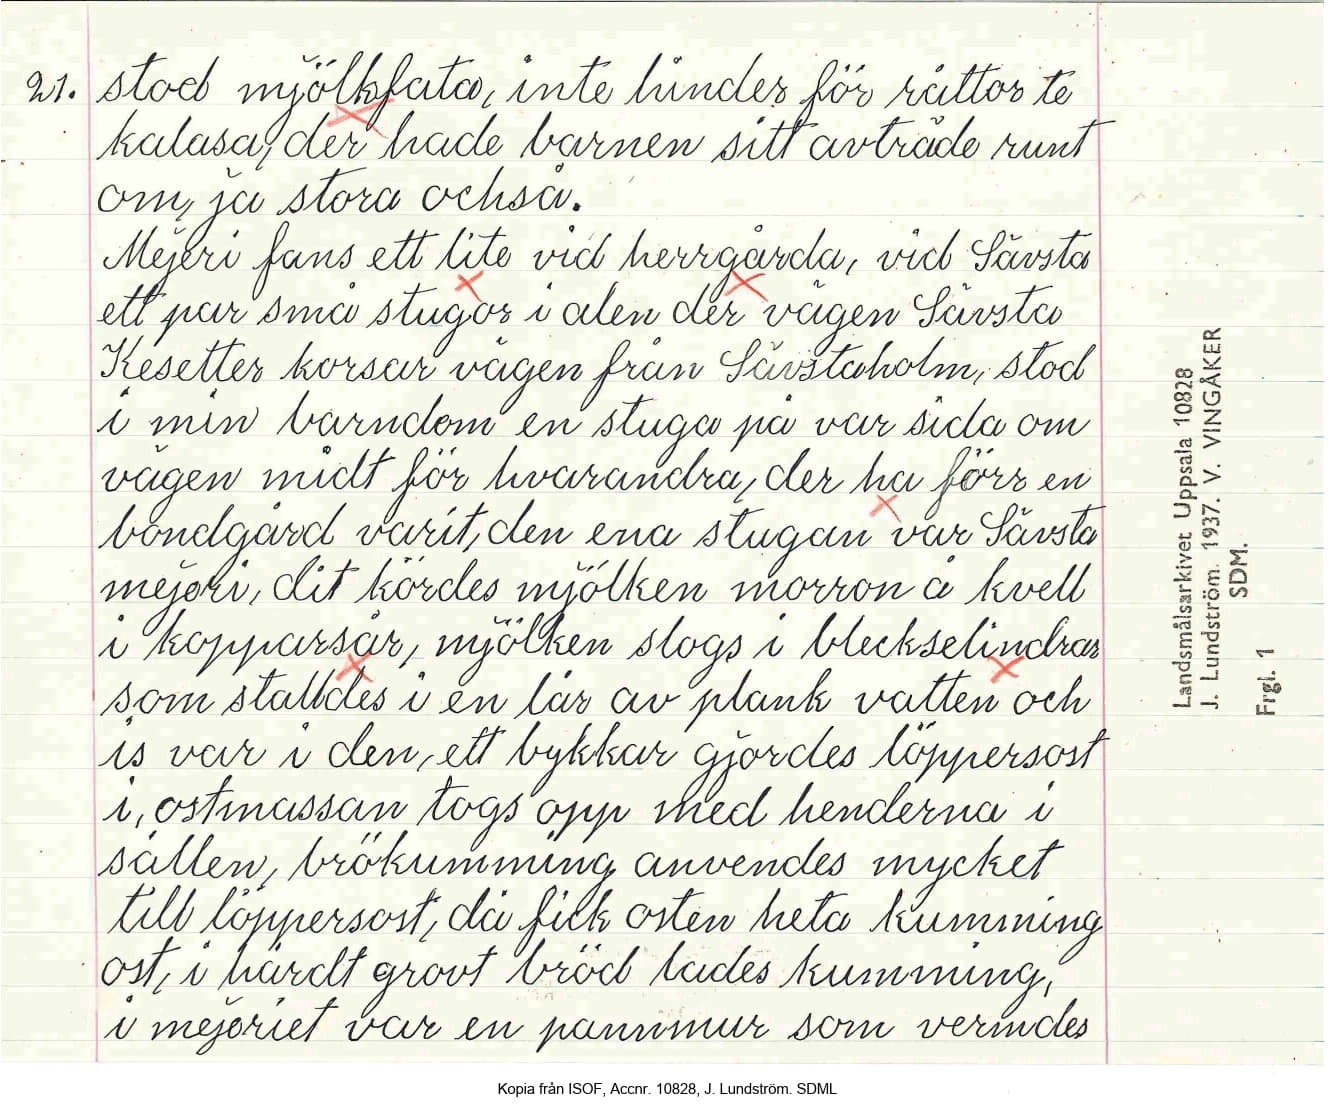 21. stod mjölkfata, inte hinder för råttor te
kalasa, der hade barnen sitt avträde runt
om, ja stora också.
Mejeri fans ett lite vid herrgårda, vid Sävsta
ett par små stugor i alen der vägen Sävsta
Kesetter korsar vägen från Sävstaholm, stod
i min barndom en stuga på var sida om
vägen midt för hvarandra, der ha förr en
bondgård varit, den ena stugan var Sävsta
mejeri, dit kördes mjölken morron å kvell
i kopparsår, mjölken slogs i bleckselindrar
som stalldes i en lår av plank vatten och
is var i den, ett bykkar gjordes löppersost
i, ostmassan togs opp med henderna i
sållen, brökumming anvendes mycket
till löppersost, då fick osten heta kumming
ost, i hårdt grovt bröd lades kumming,
i mejeriet var en pannmur som vermdes
Landsmålsarkivet Uppsala 10828
J. Lundström. 1937. V. VINGÅKER
SDM.
Frgl. 1
Kopia från ISOF, Accnr. 10828, J. Lundström. SDML